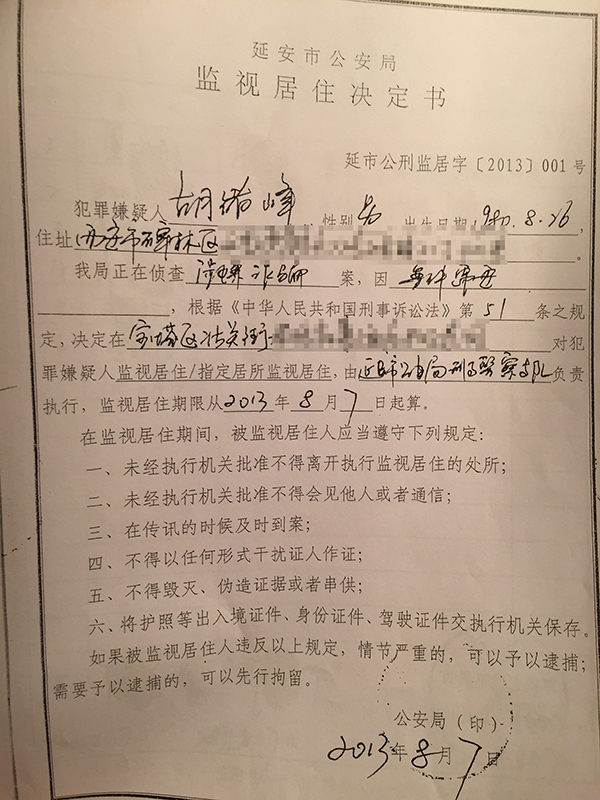 延安市公安局
监视居住决定书
延市公刑监居字〔2013〕001号
犯罪嫌疑人 胡 峰,性别 男 出生日期 1980.8.26,
住址 西安市碑林区 。
我局正在侦查 涉嫌诈骗 案,因
,根据《中华人民共和国刑事诉讼法》第 51 条之规
定,决定在 宝塔区 街 对犯
罪嫌疑人监视居住/指定居所监视居住,由 延安市公安局刑事警察支队 负责
执行,监视居住期限从 2013 年 8 月 7 日起算。
在监视居住期间,被监视居住人应当遵守下列规定:
一、未经执行机关批准不得离开执行监视居住的处所;
二、未经执行机关批准不得会见他人或者通信;
三、在传讯的时候及时到案;
四、不得以任何形式干扰证人作证;
五、不得毁灭、伪造证据或者串供;
六、将护照等出入境证件、身份证件、驾驶证件交执行机关保存。
如果被监视居住人违反以上规定,情节严重的,可以予以逮捕;
需要予以逮捕的,可以先行拘留。
公安局(印)
2013年8月7日